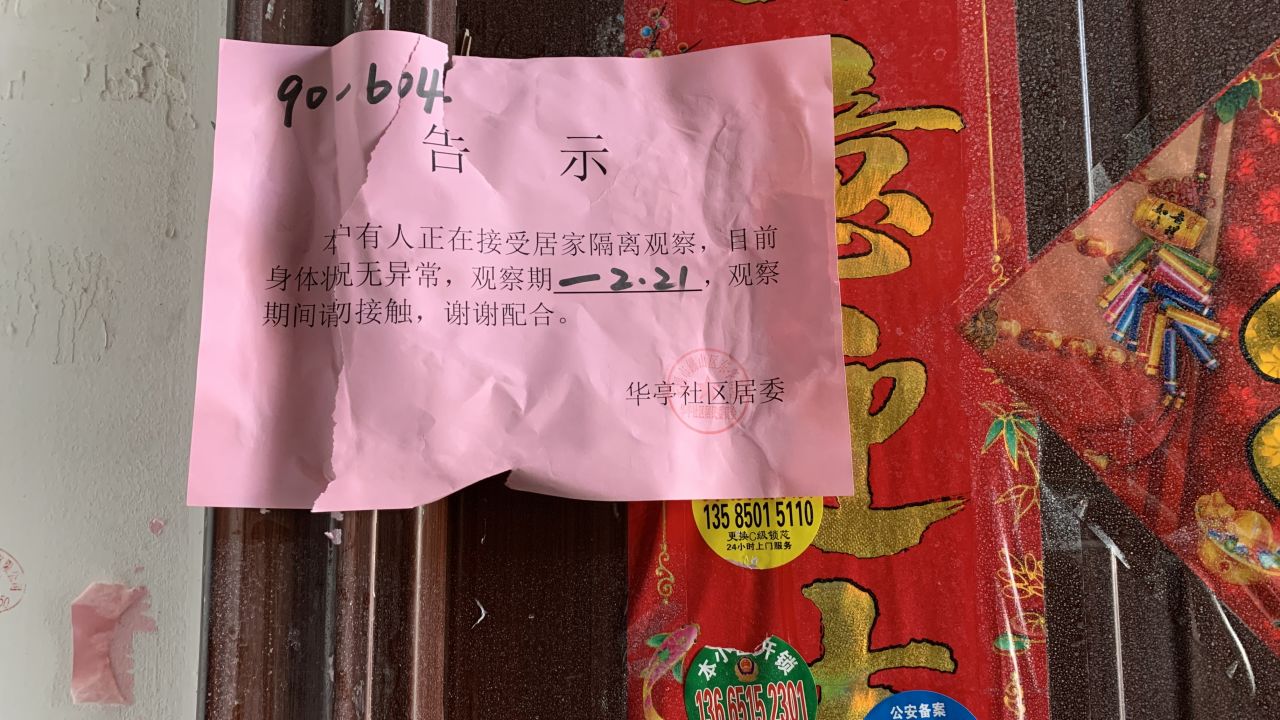 90-604
告 示
本户有人正在接受居家隔离观察，目前
身体状况无异常，观察期—2.21，观察
期间请勿接触，谢谢配合。
华亭社区居委
意迎
135 8501 5110
更换C级锁芯
24小时上门服务
本小 开锁
136 6515 2301
公安备案